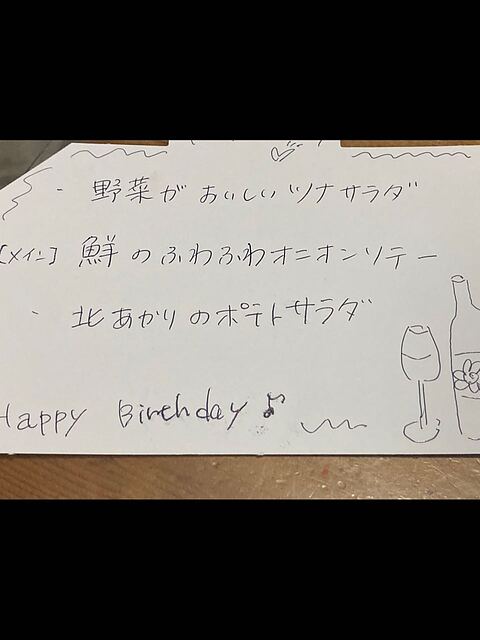 ・野菜がおいしいツナサラダ
[メイン] 鮮のふわふわオニオンソテー
・北あかりのポテトサラダ
Happy Birthday♪